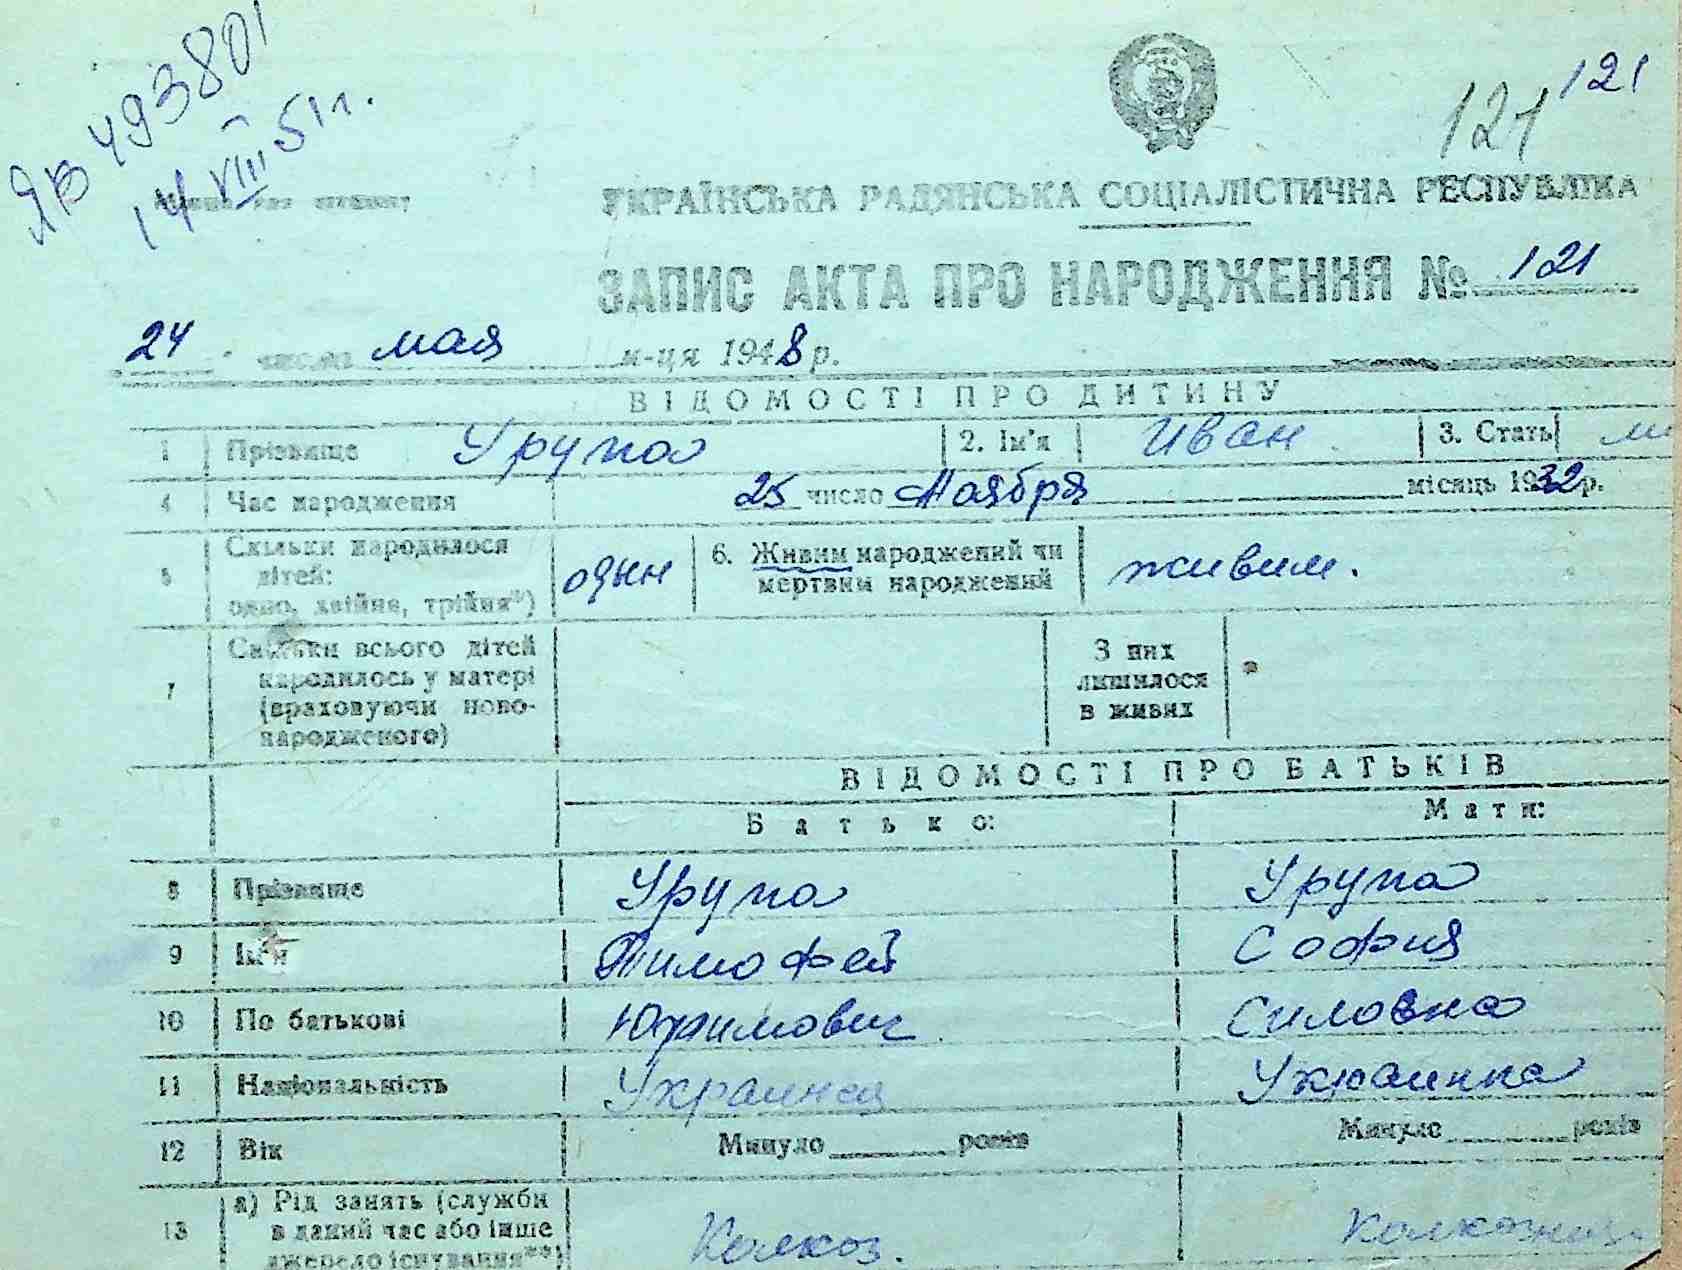 ЯВ 493801
14 VIII 51 г.
121
121
УКРАЇНСЬКА РАДЯНСЬКА СОЦІАЛІСТИЧНА РЕСПУБЛІКА
ЗАПИС АКТА ПРО НАРОДЖЕННЯ № 121
24 число мая м-ця 1948 р.
ВІДОМОСТІ ПРО ДИТИНУ
1 Прізвище Урупа 2. Ім'я Иван 3. Стать
4 Час народження 25 число Ноября місяць 1932 р.
5 Скільки народилося
дітей:
одно, двійня, трійня**)
одын
6. Живим народжений чи
мертвим народжений
живим.
7 Скільки всього дітей
народилось у матері
(враховуючи ново-
народженого)
З них
лишилося
в живих
ВІДОМОСТІ ПРО БАТЬКІВ
Батько: Мати:
8 Прізвище Урупа Урупа
9 Ім'я Тимофей София
10 По батькові Юхимович Силовна
11 Національність Украинец Украинка
12 Вік Минуло ____ років Минуло ____ років
13 а) Рід занять (служби
в даний час або інше
джерело існування**)
Колхоз.